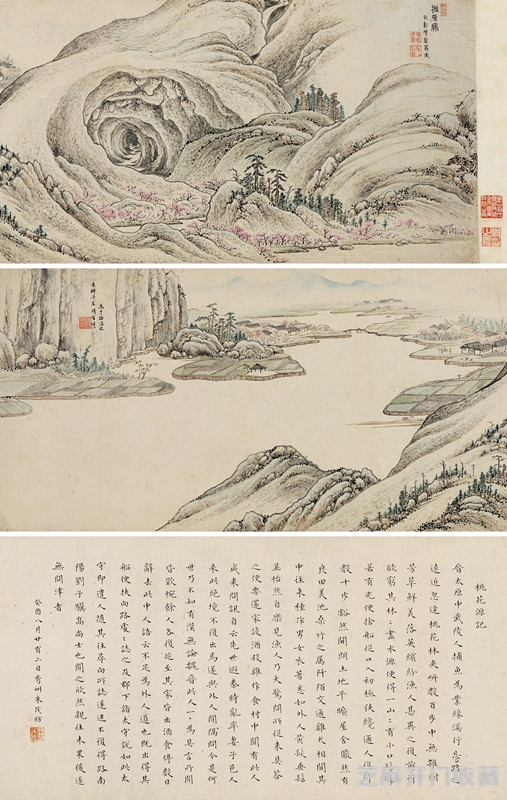 桃花源記
晉太原中武陵人捕魚為業緣溪行忘路之
遠近忽逢桃花林夾岸數百步中無雜樹
芳草鮮美落英繽紛漁人甚異之復前行
欲窮其林林盡水源便得一山山有小口
若有光便捨船從口入初極狹纔通人復行
數十步豁然開朗土地平曠屋舍儼然有
良田美池桑竹之屬阡陌交通雞犬相聞其
中往來種作男女衣著悉如外人黃髮垂髫
並怡然自樂見漁人乃大驚問所從來具答
之便要還家設酒殺雞作食村中聞有此人
咸來問訊自云先世避秦時亂率妻子邑人
來此絕境不復出焉遂與外人間隔問今是何
世乃不知有漢無論魏晉此人一一為具言所聞
皆歎惋餘人各復延至其家皆出酒食停數日
辭去此中人語云不足為外人道也既出得其
船便扶向路處〻誌之及郡下詣太守說如此太
守即遣人隨其往尋向所誌遂迷不復得路南
陽劉子驥高尚士也聞之欣然親往未果後遂
無問津者
癸酉八月廿有二日秀州朱茂
芝麻开门收藏